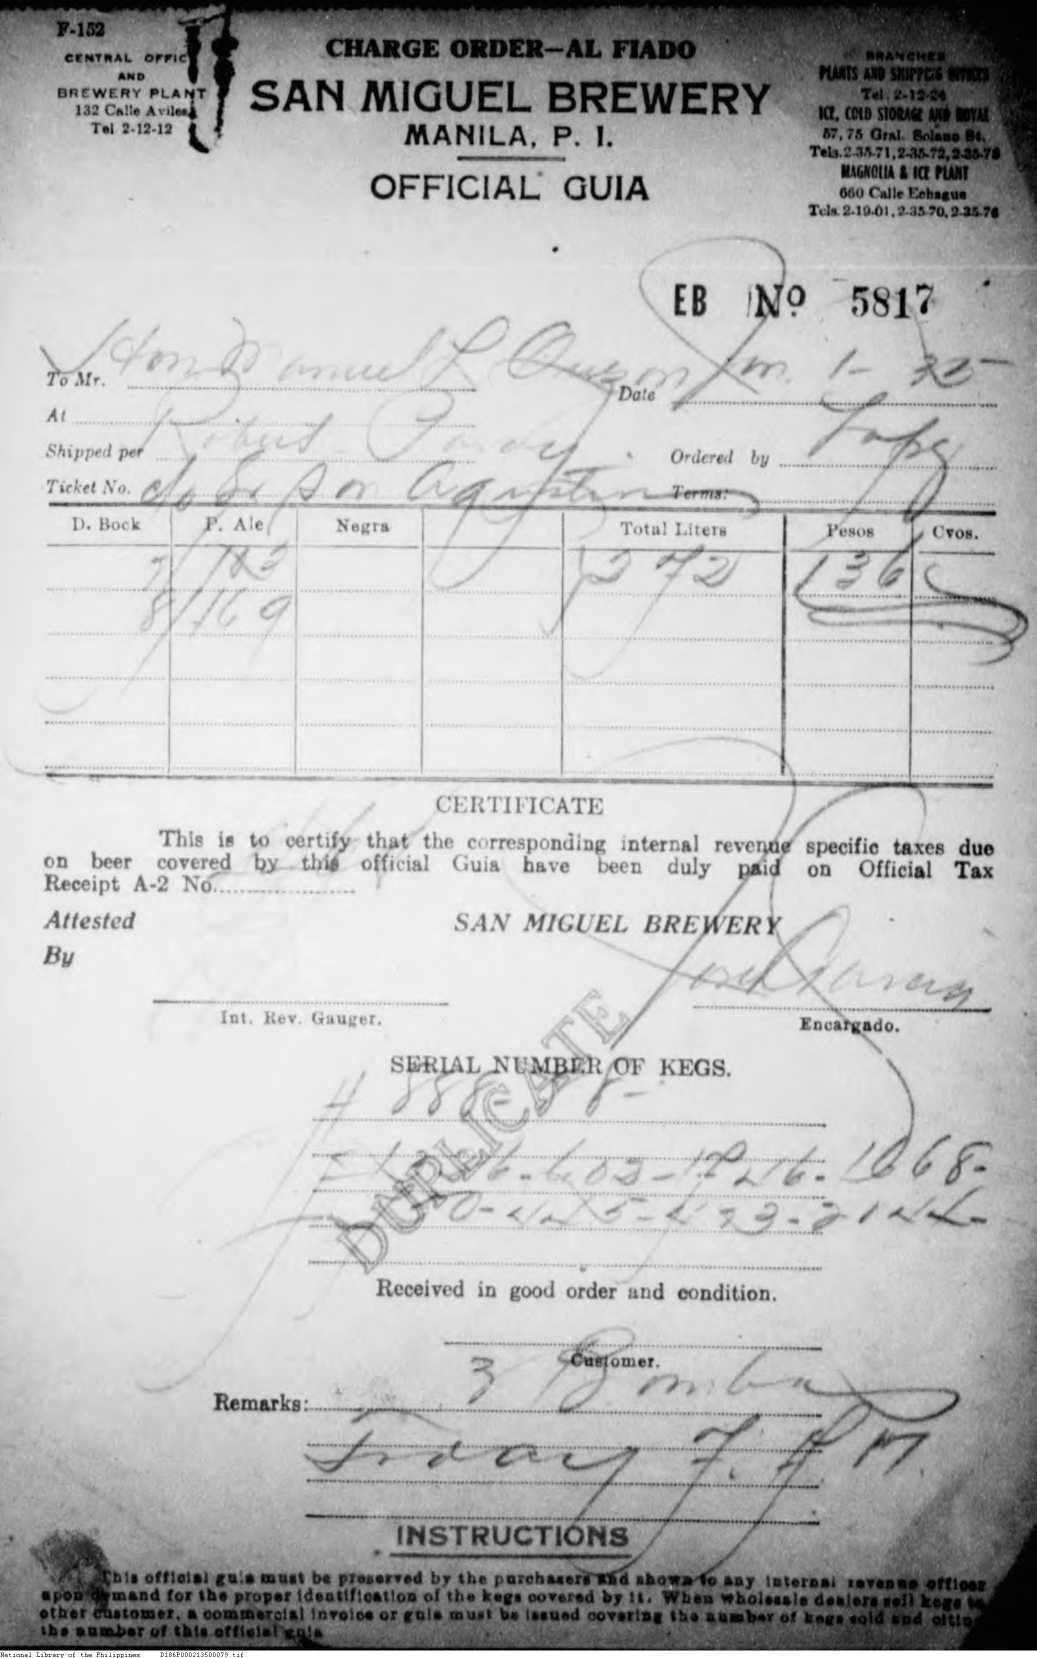 F-152
CENTRAL OFFIC
AND
BREWERY PLANT
132 Calle Aviles
Tel 2-12-12
CHARGE ORDER—AL FIADO
SAN MIGUEL BREWERY
MANILA, P. I.
OFFICIAL GUIA
BRANCHES
PLANTS AND SHIPPING OFFICES
Tel. 2-12-24
ICE, COLD STORAGE AND ROYAL
57, 75 Gral. Solano St.
Tels. 2-35-71, 2-35-72, 2-35-76
MAGNOLIA & ICE PLANT
660 Calle Echague
Tels. 2-19-01, 2-35-70, 2-35-76
EB No 5817
To Mr. Hon Manuel L Quezon Date Jan. 1- 35
At
Shipped per Robert Ordered by Lopez
Ticket No. c/o San Agustin Terms:
D. Bock P. Ale Negra Total Liters Pesos Cvos.
7/ 103 272 136
8/169
CERTIFICATE
This is to certify that the corresponding internal revenue specific taxes due
on beer covered by this official Guia have been duly paid on Official Tax
Receipt A-2 No.
Attested SAN MIGUEL BREWERY
By
Int. Rev. Gauger. Encargado.
SERIAL NUMBER OF KEGS.
DUPLICATE
Received in good order and condition.
Customer.
3 Bomba
Remarks:
Today 7. P. M.
INSTRUCTIONS
This official guia must be preserved by the purchasers and shown to any internal revenue officer
upon demand for the proper identification of the kegs covered by it. When wholesale dealers sell kegs to
other customer, a commercial invoice or guia must be issued covering the number of kegs sold and citing
the number of this official guia
National Library of the Philippines D186P000213500079.tif